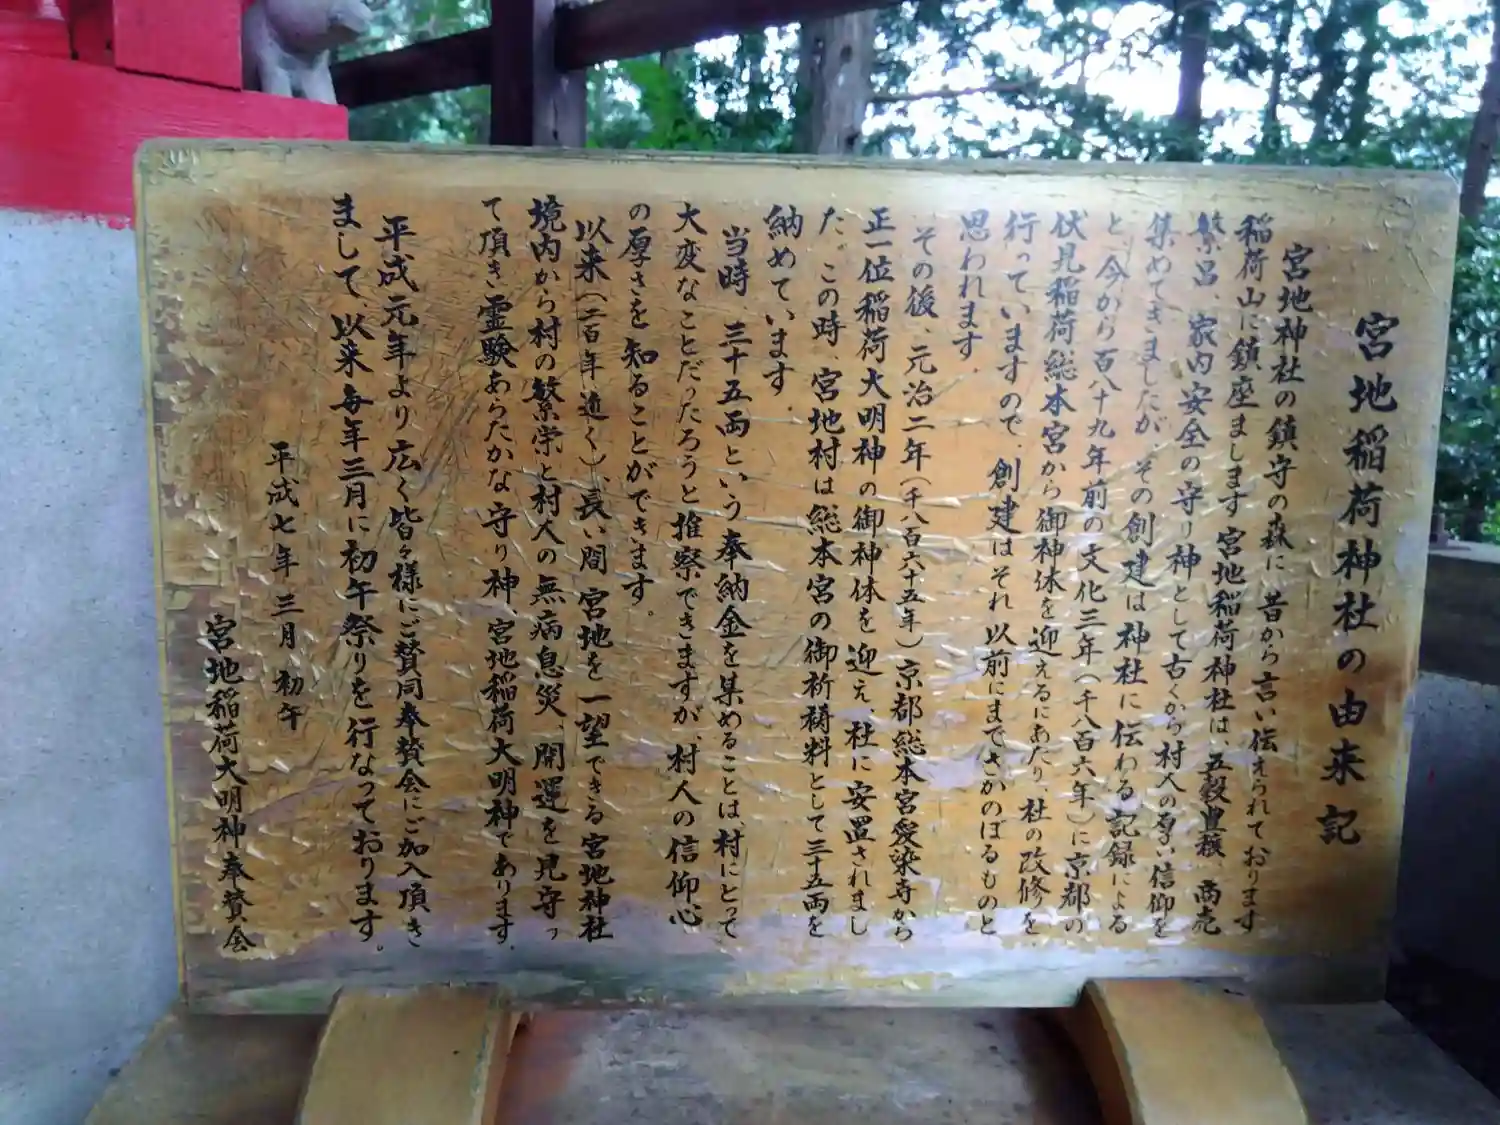 宮地稲荷神社の由来記
宮地神社の鎮守の森に昔から言い伝えられております
稲荷山に鎮座まします宮地稲荷神社は、五穀豊穣、商売
繁呂、家内安全の守り神として古くから村人の尊い信仰を
集めてきましたが、その創建は神社に伝わる記録による
と、今から百八十九年前の文化三年(千八百六年)に京都の
伏見稲荷総本宮から御神体を迎えるにあたり、社の改修を
行っていますので、創建はそれ以前にまでさかのぼるものと
思われます。
その後、元治二年(千八百六十五年)京都総本宮愛染寺から
正一位稲荷大明神の御神体を迎え、社に安置されまし
た。この時、宮地村は総本宮の御祈祷料として三十五両を
納めています。
当時 三十五両という奉納金を集めることは、村にとって
大変なことだったろうと推察できますが、村人の信仰心
の厚さを知ることができます。
以来(二百年近く)、長い間宮地を一望できる宮地神社
境内から村の繁栄と村人の無病息災、開運を見守っ
て頂き霊験あらたかな守り神、宮地稲荷大明神であります。
平成元年より広く皆々様にご賛同奉賛会にご加入頂き
まして、以来毎年三月に初午祭りを行なっております。
平成七年 三月 初午
宮地稲荷大明神奉賛会